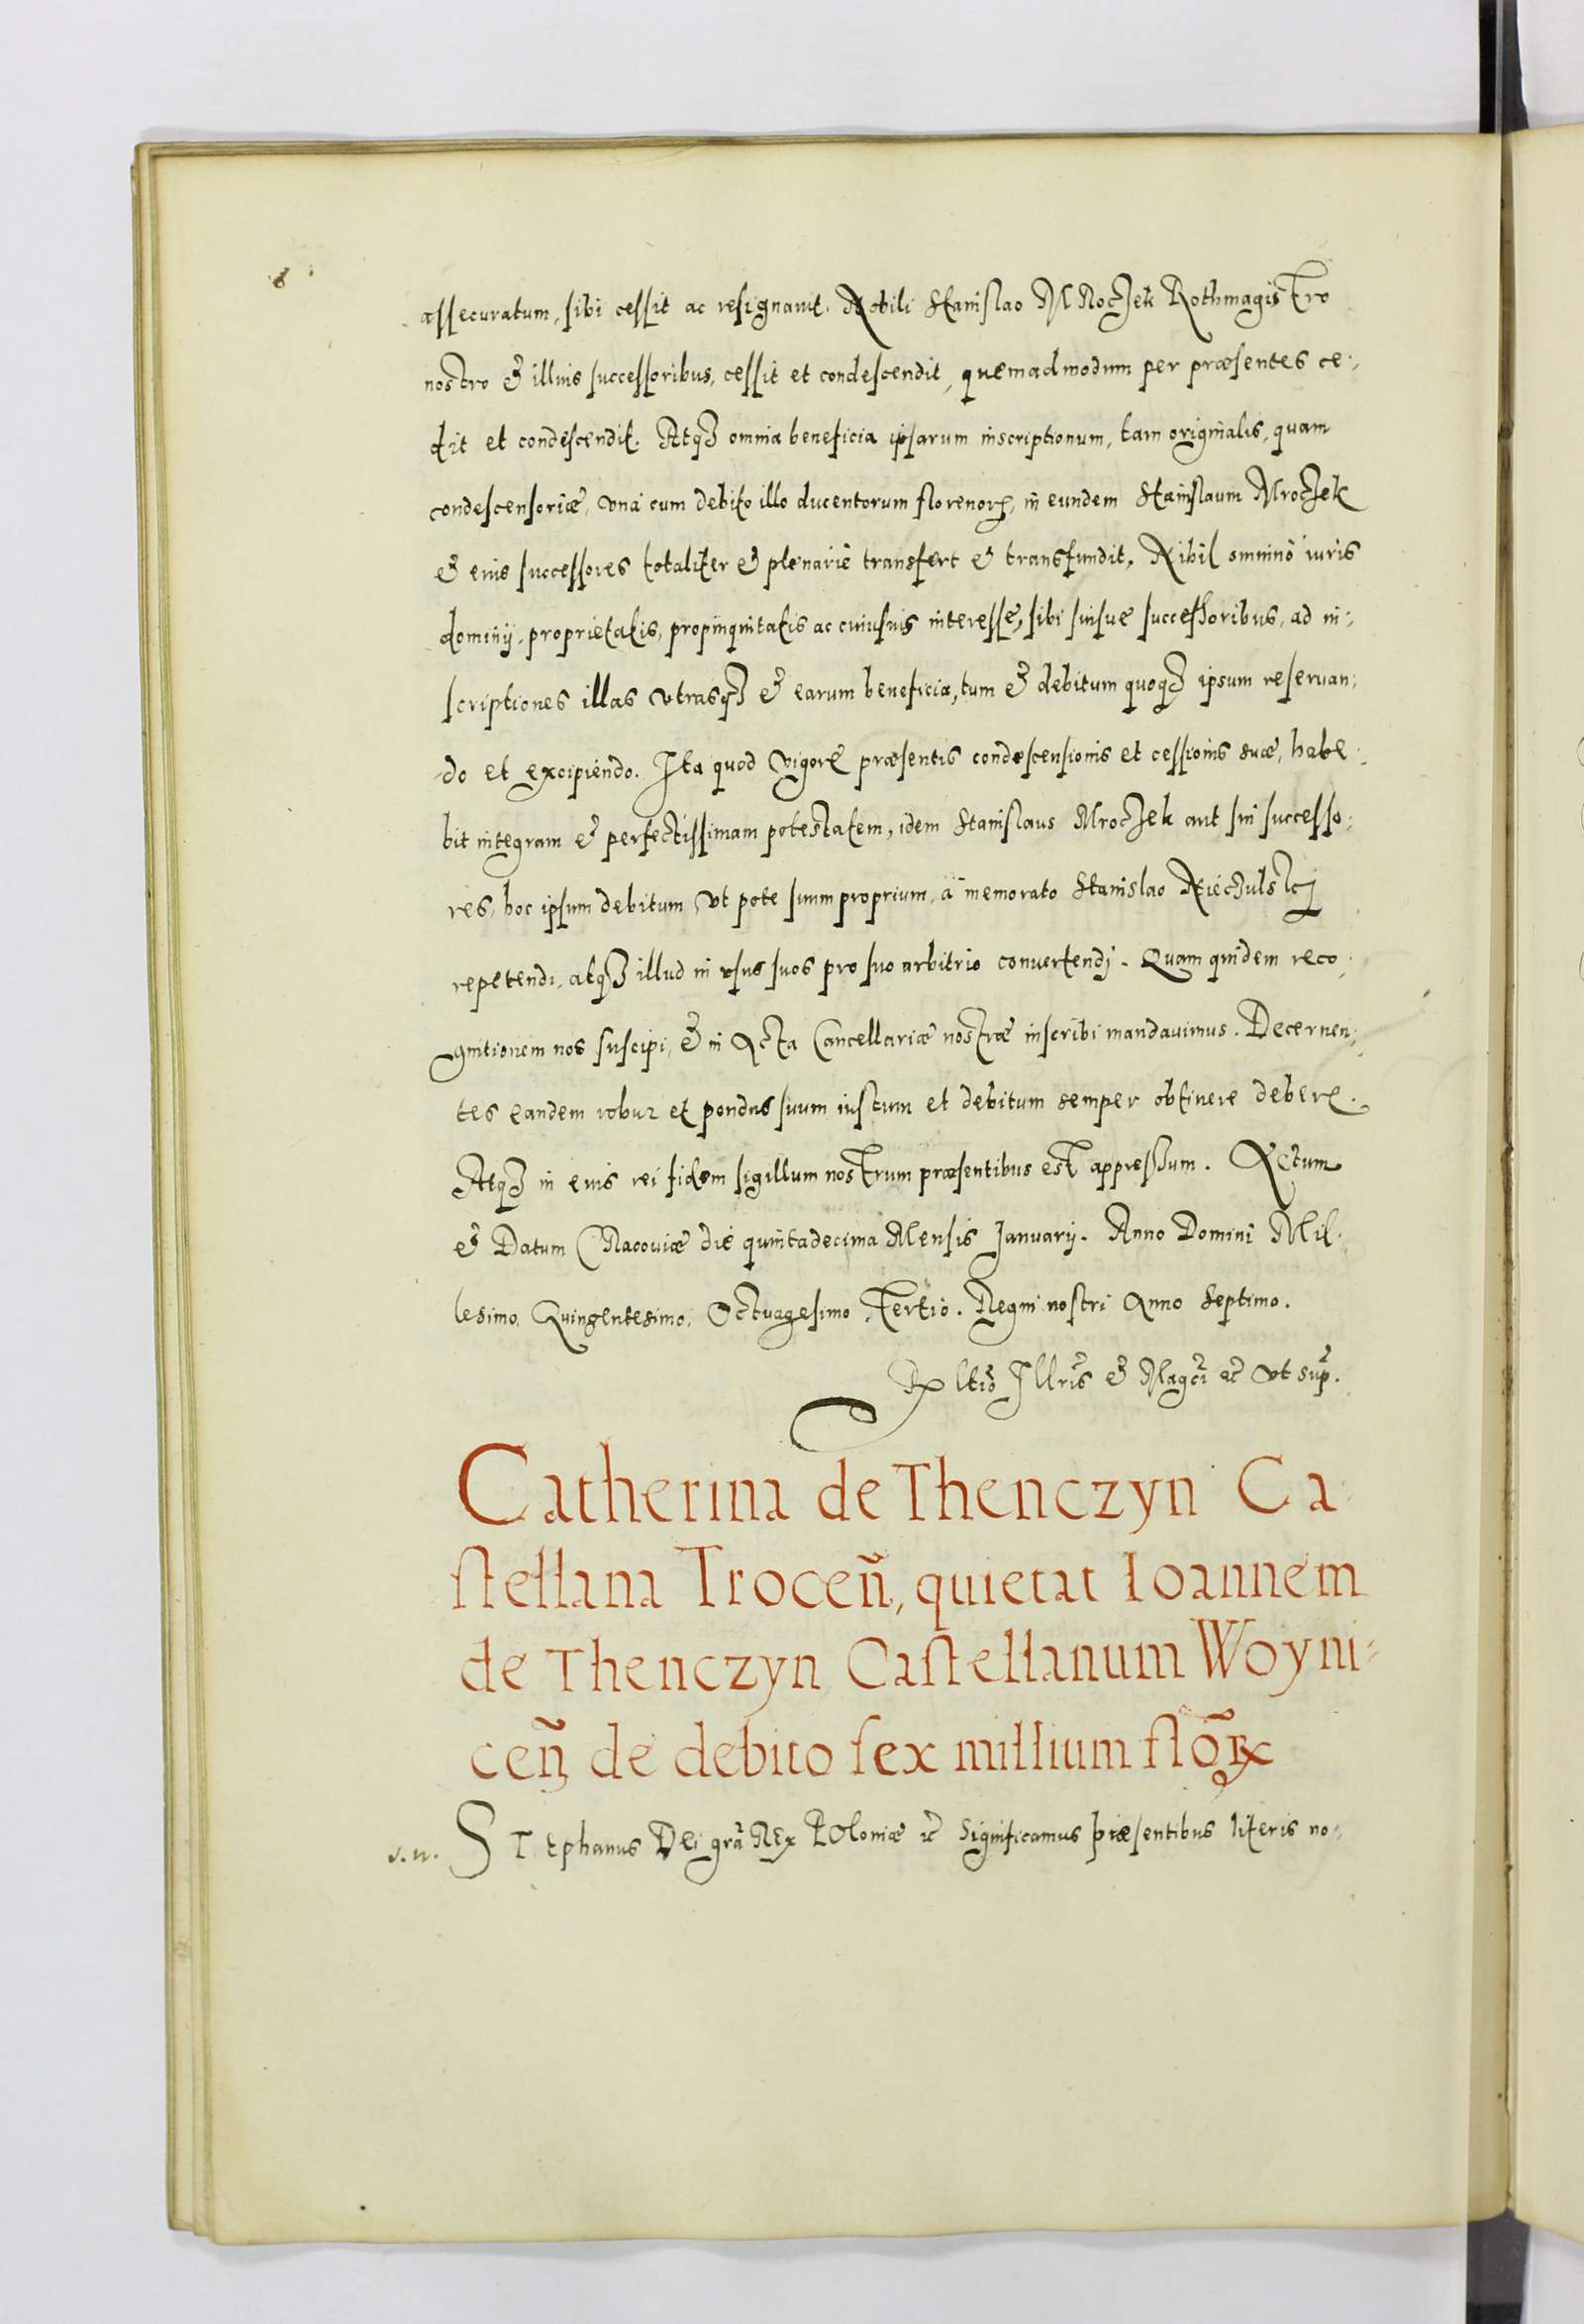 assecuratum, sibi cessit ac resignauit. Nobili Stanislao Mroczek Rothmagistro
nostro & illius successoribus, cessit et condescendit, quemadmodum per præsentes ce:
dit et condescendit. Atqꝫ omnia beneficia ipsarum inscriptionum, tam originalis, quam
condescensoriæ, vna cum debito illo ducentorum florenorꝝ, in eundem Stanislaum Mroczek
& eius successores totaliter & plenariè transfert & transfundit, Nihil omninò iuris
dominij, proprietatis, propinquitatis ac cuiusuis interesse, sibi suisue successoribus, ad in:
scriptiones illas vtrasqꝫ & earum beneficia, tum & debitum quoqꝫ ipsum reseruan:
do et excipiendo. Ita quod vigore præsentis condescensionis et cessionis suæ, habe:
bit integram & perfectissimam potestatem, idem Stanislaus Mroczek aut sui successo:
res, hoc ipsum debitum vt pote suum proprium, à memorato Stanislao Nieczulskj
repetendi, atqꝫ illud in vsus suos pro suo arbitrio conuertendj. Quam quidem reco:
gnitionem nos suscipi, & in Acta Cancellariæ nostræ inscribi mandauimus. Decernen:
tes eandem robur et pondus suum iustum et debitum semper obtinere debere.
Atqꝫ in eius rei fidem sigillum nostrum præsentibus est appressum. Actum
& Datum Cracouiæ die quintadecima Mensis Januarij. Anno Domini Mil:
lesimo, Quingentesimo, Octuagesimo, Tertio. Regni nostri Anno Septimo.
Rx ltio Illris & Magci ac vt sup.
Catherina de Thenczyn Ca:
stellana Troceñ, quietat Ioannem
de Thenczyn Castellanum Woyni:
ceñ de debito sex millium florꝝ
STephanus Dei grã Rex POloniæ &c Significamus præsentibus literis no: